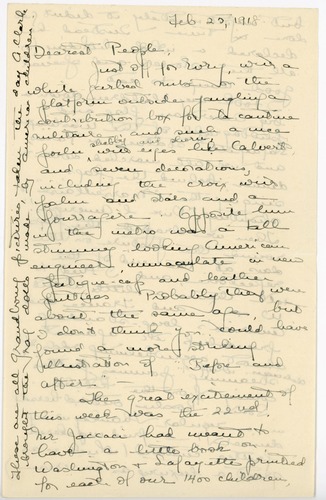 Feb 25, 1918
Dearest People,
Just off for Evry, with a
white garbed nurse on the
platform outside jangling a
contribution box for la cantine
militaire, and such a nice
poilu, shabby and dirty,
with eyes like Calvert's
and seven decorations,
including the croix with
palm and stars and a
fourragère. Opposite him
in the metro was a tall
trimming looking American
engineer, immaculate in new
fatigue cap and leather
puttees. Probably they were
about the same age, but
I don't think you could have
found a more striking
illustration of "Before and
After" —
The great excitement of
this week was the 22nd.
Mr Jaccaci had meant to
have a little book on
Washington & Lafayette printed
for each of our 1400 children,
These are all Grandlong pictures, taken the day A. Clark
brought the rag dolls made by American children